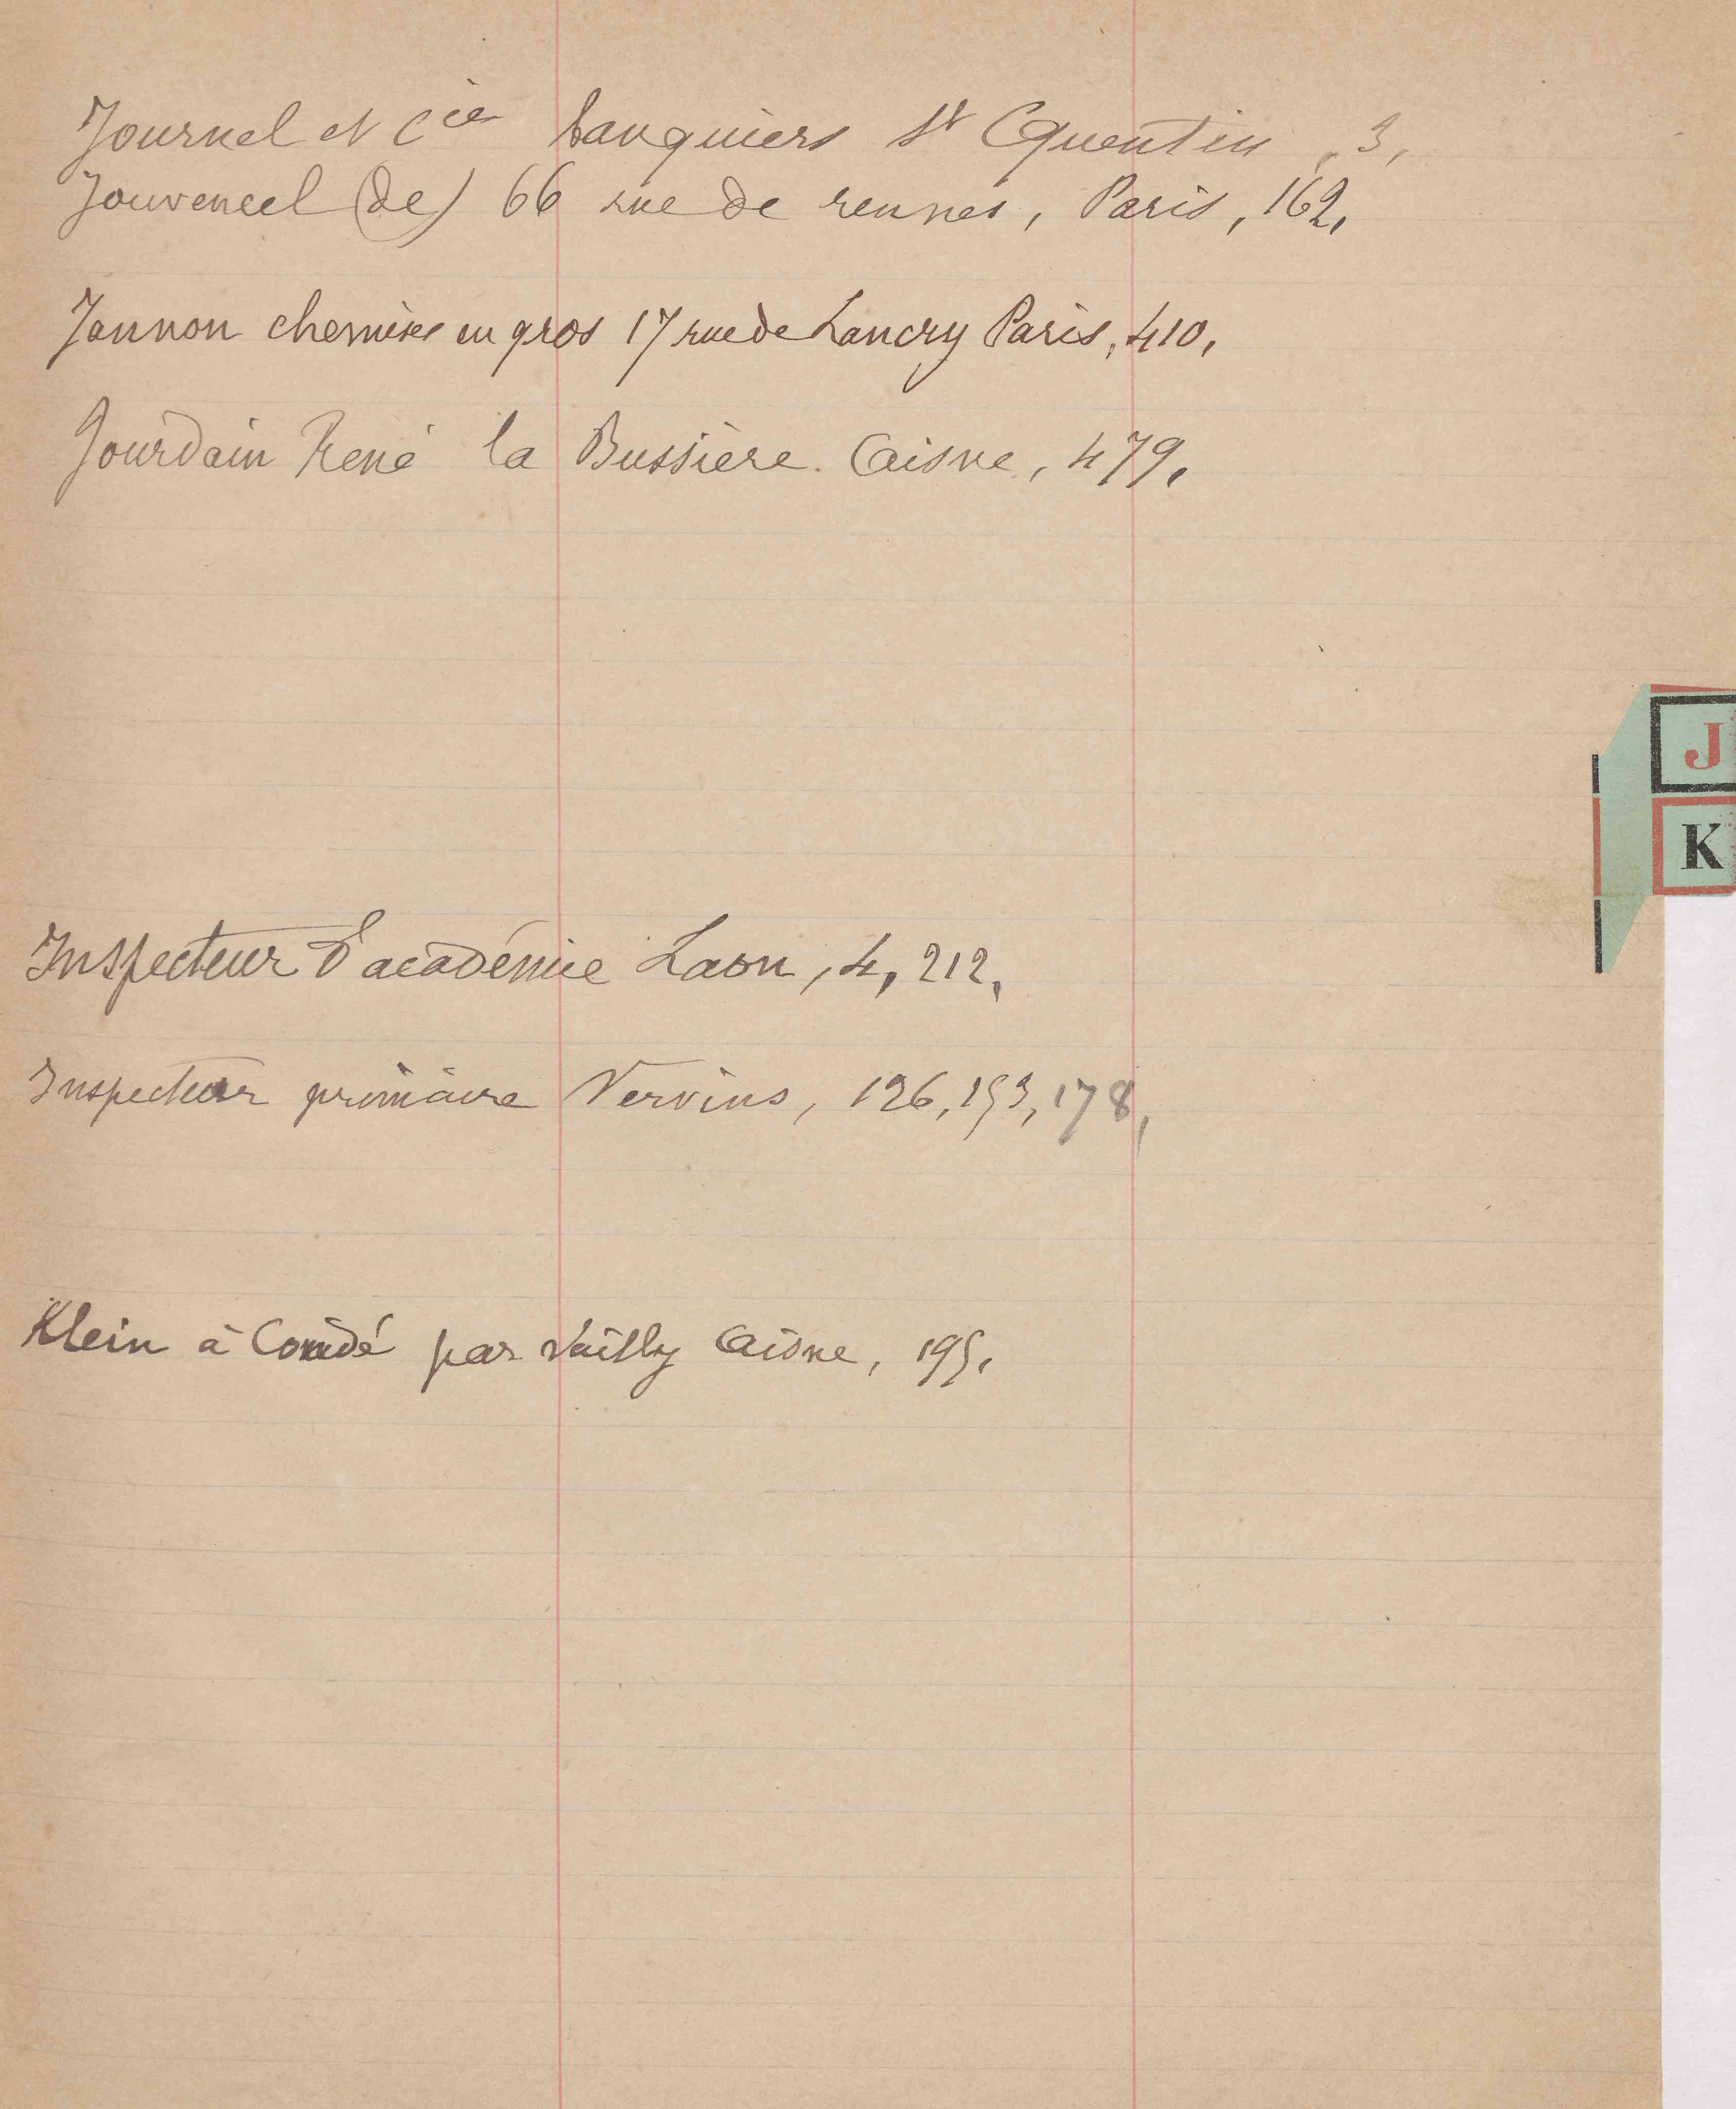 Journel et Cie banquiers St Quentin, 3,
Jouvencel (de) 66 rue de rennes, Paris, 162,
Jannon chemises en gros 17 rue de Lancry Paris, 410,
Jourdain René la Bussière. Aisne, 479,
J
K
Inspecteur d'académie Laon, 4, 212,
Inspecteur primaire Vervins, 126, 153, 178,
Klein à Condé par Vailly Aisne, 195,